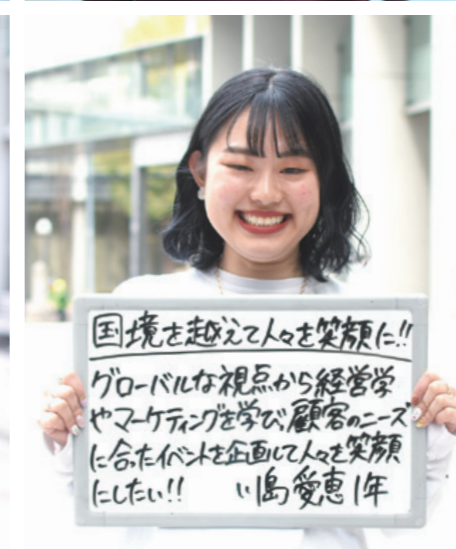 国境を越えて人々を笑顔に!!
グローバルな視点から経営学
やマーケティングを学び、顧客のニーズ
に合ったイベントを企画して人々を笑顔
にしたい!! 川島 愛恵 1年